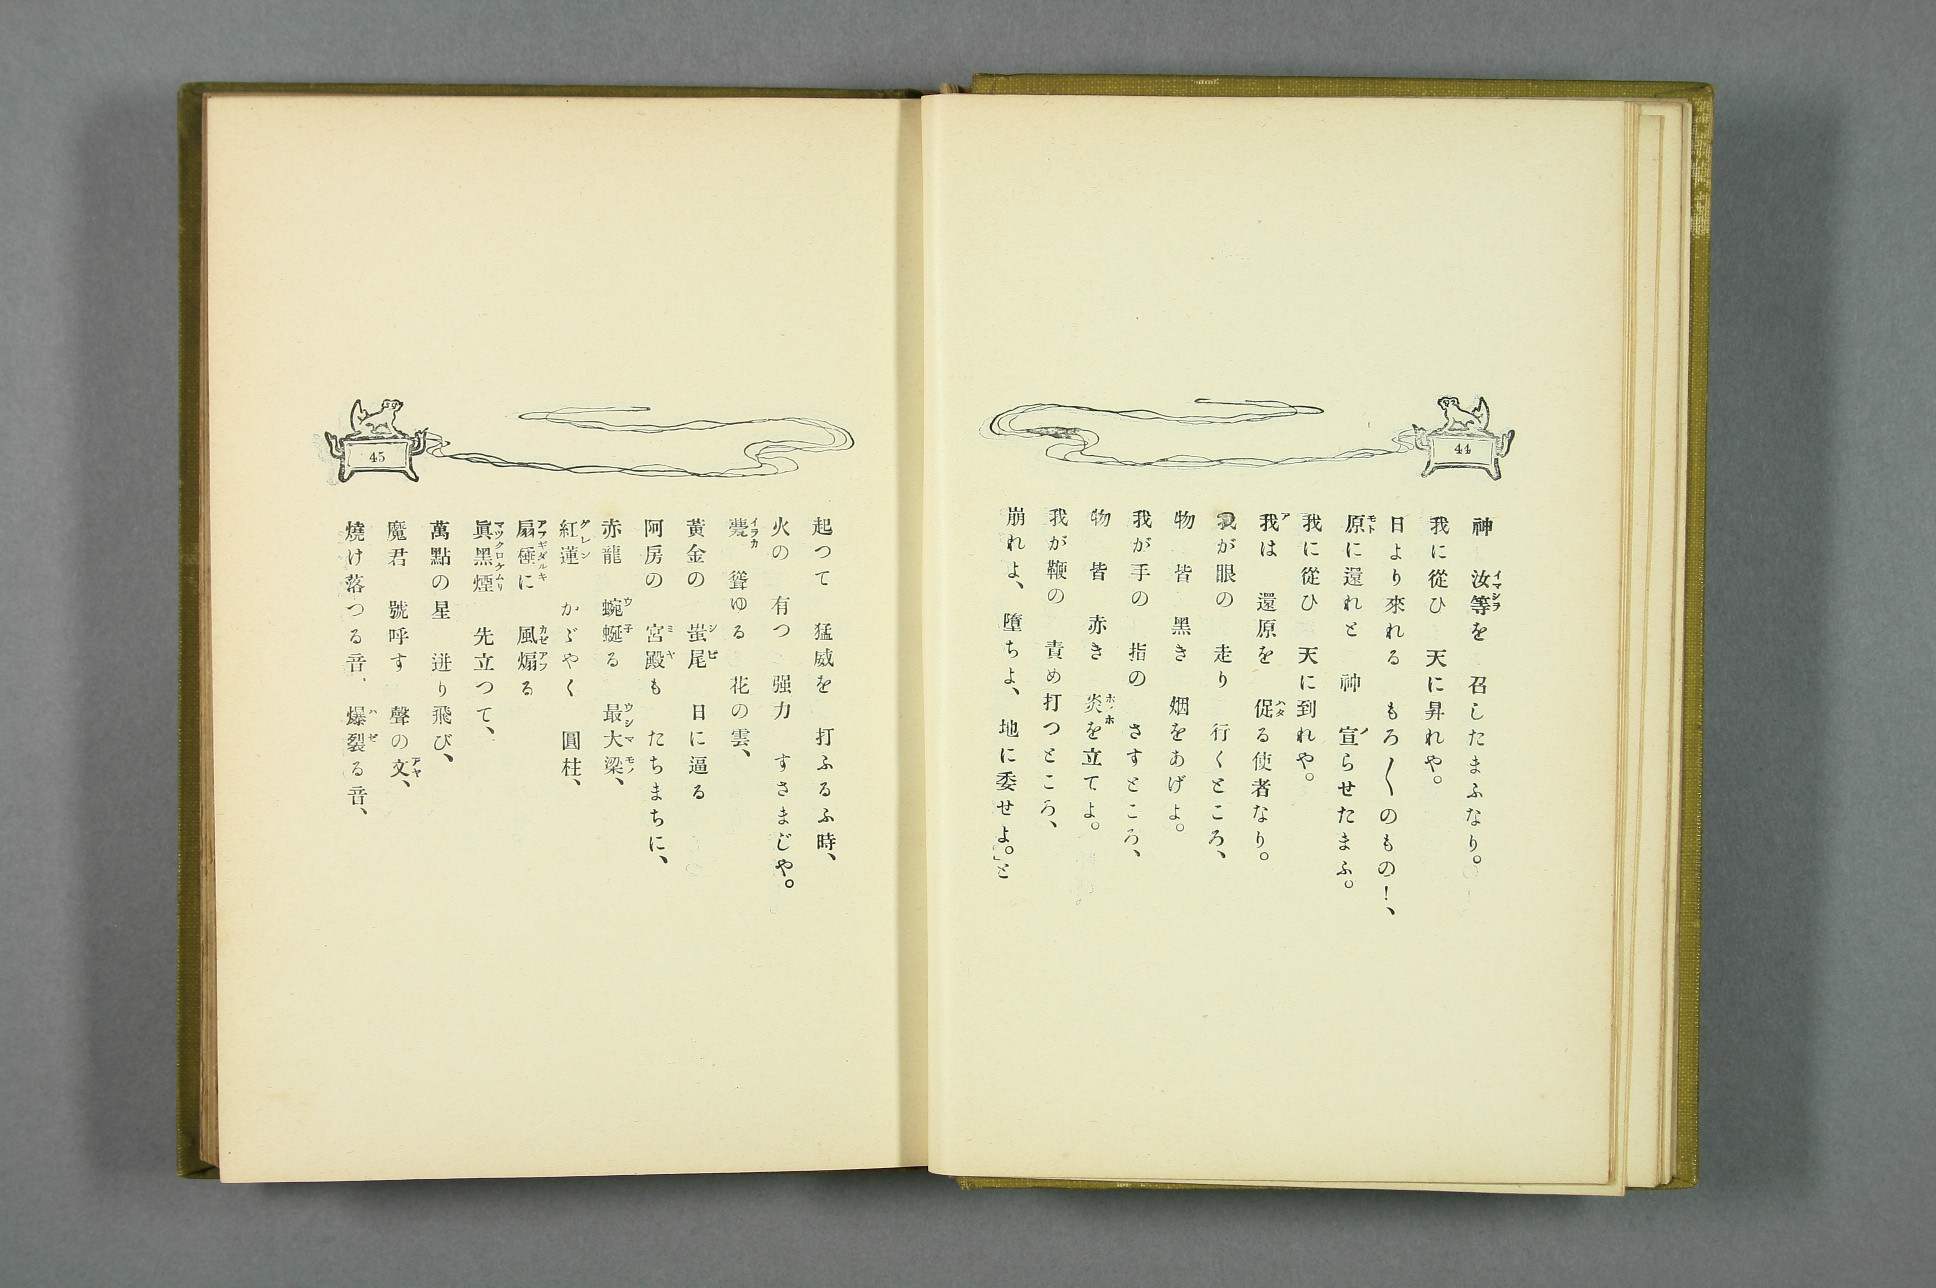 44
神 汝等を 召したまふなり。
我に從ひ 天に昇れや。
日より來れる もろ〳〵のもの!、
原に還れと 神 宣らせたまふ。
我に從ひ 天に到れや。
我は 還原を 促る使者なり。
我が眼の 走り 行くところ、
物 皆 黑き 烟をあげよ。
我が手の 指の さすところ、
物 皆 赤き 炎を立てよ。
我が鞭の 責め打つところ、
崩れよ、墮ちよ、地に委せよ。」と
45
起つて 猛威を 打ふるふ時、
火の 有つ 强力 すさまじや。
甍 聳ゆる 花の雲、
黃金の 蚩尾 日に逼る
阿房の 宮殿も たちまちに、
赤龍 蜿蜒る 最大梁、
紅蓮 かゞやく 圓柱、
扇棰に 風煽る
眞黑煙 先立つて、
萬點の星 迸り飛び、
魔君 號呼す 聲の文、
燒け落つる音、爆裂る音、